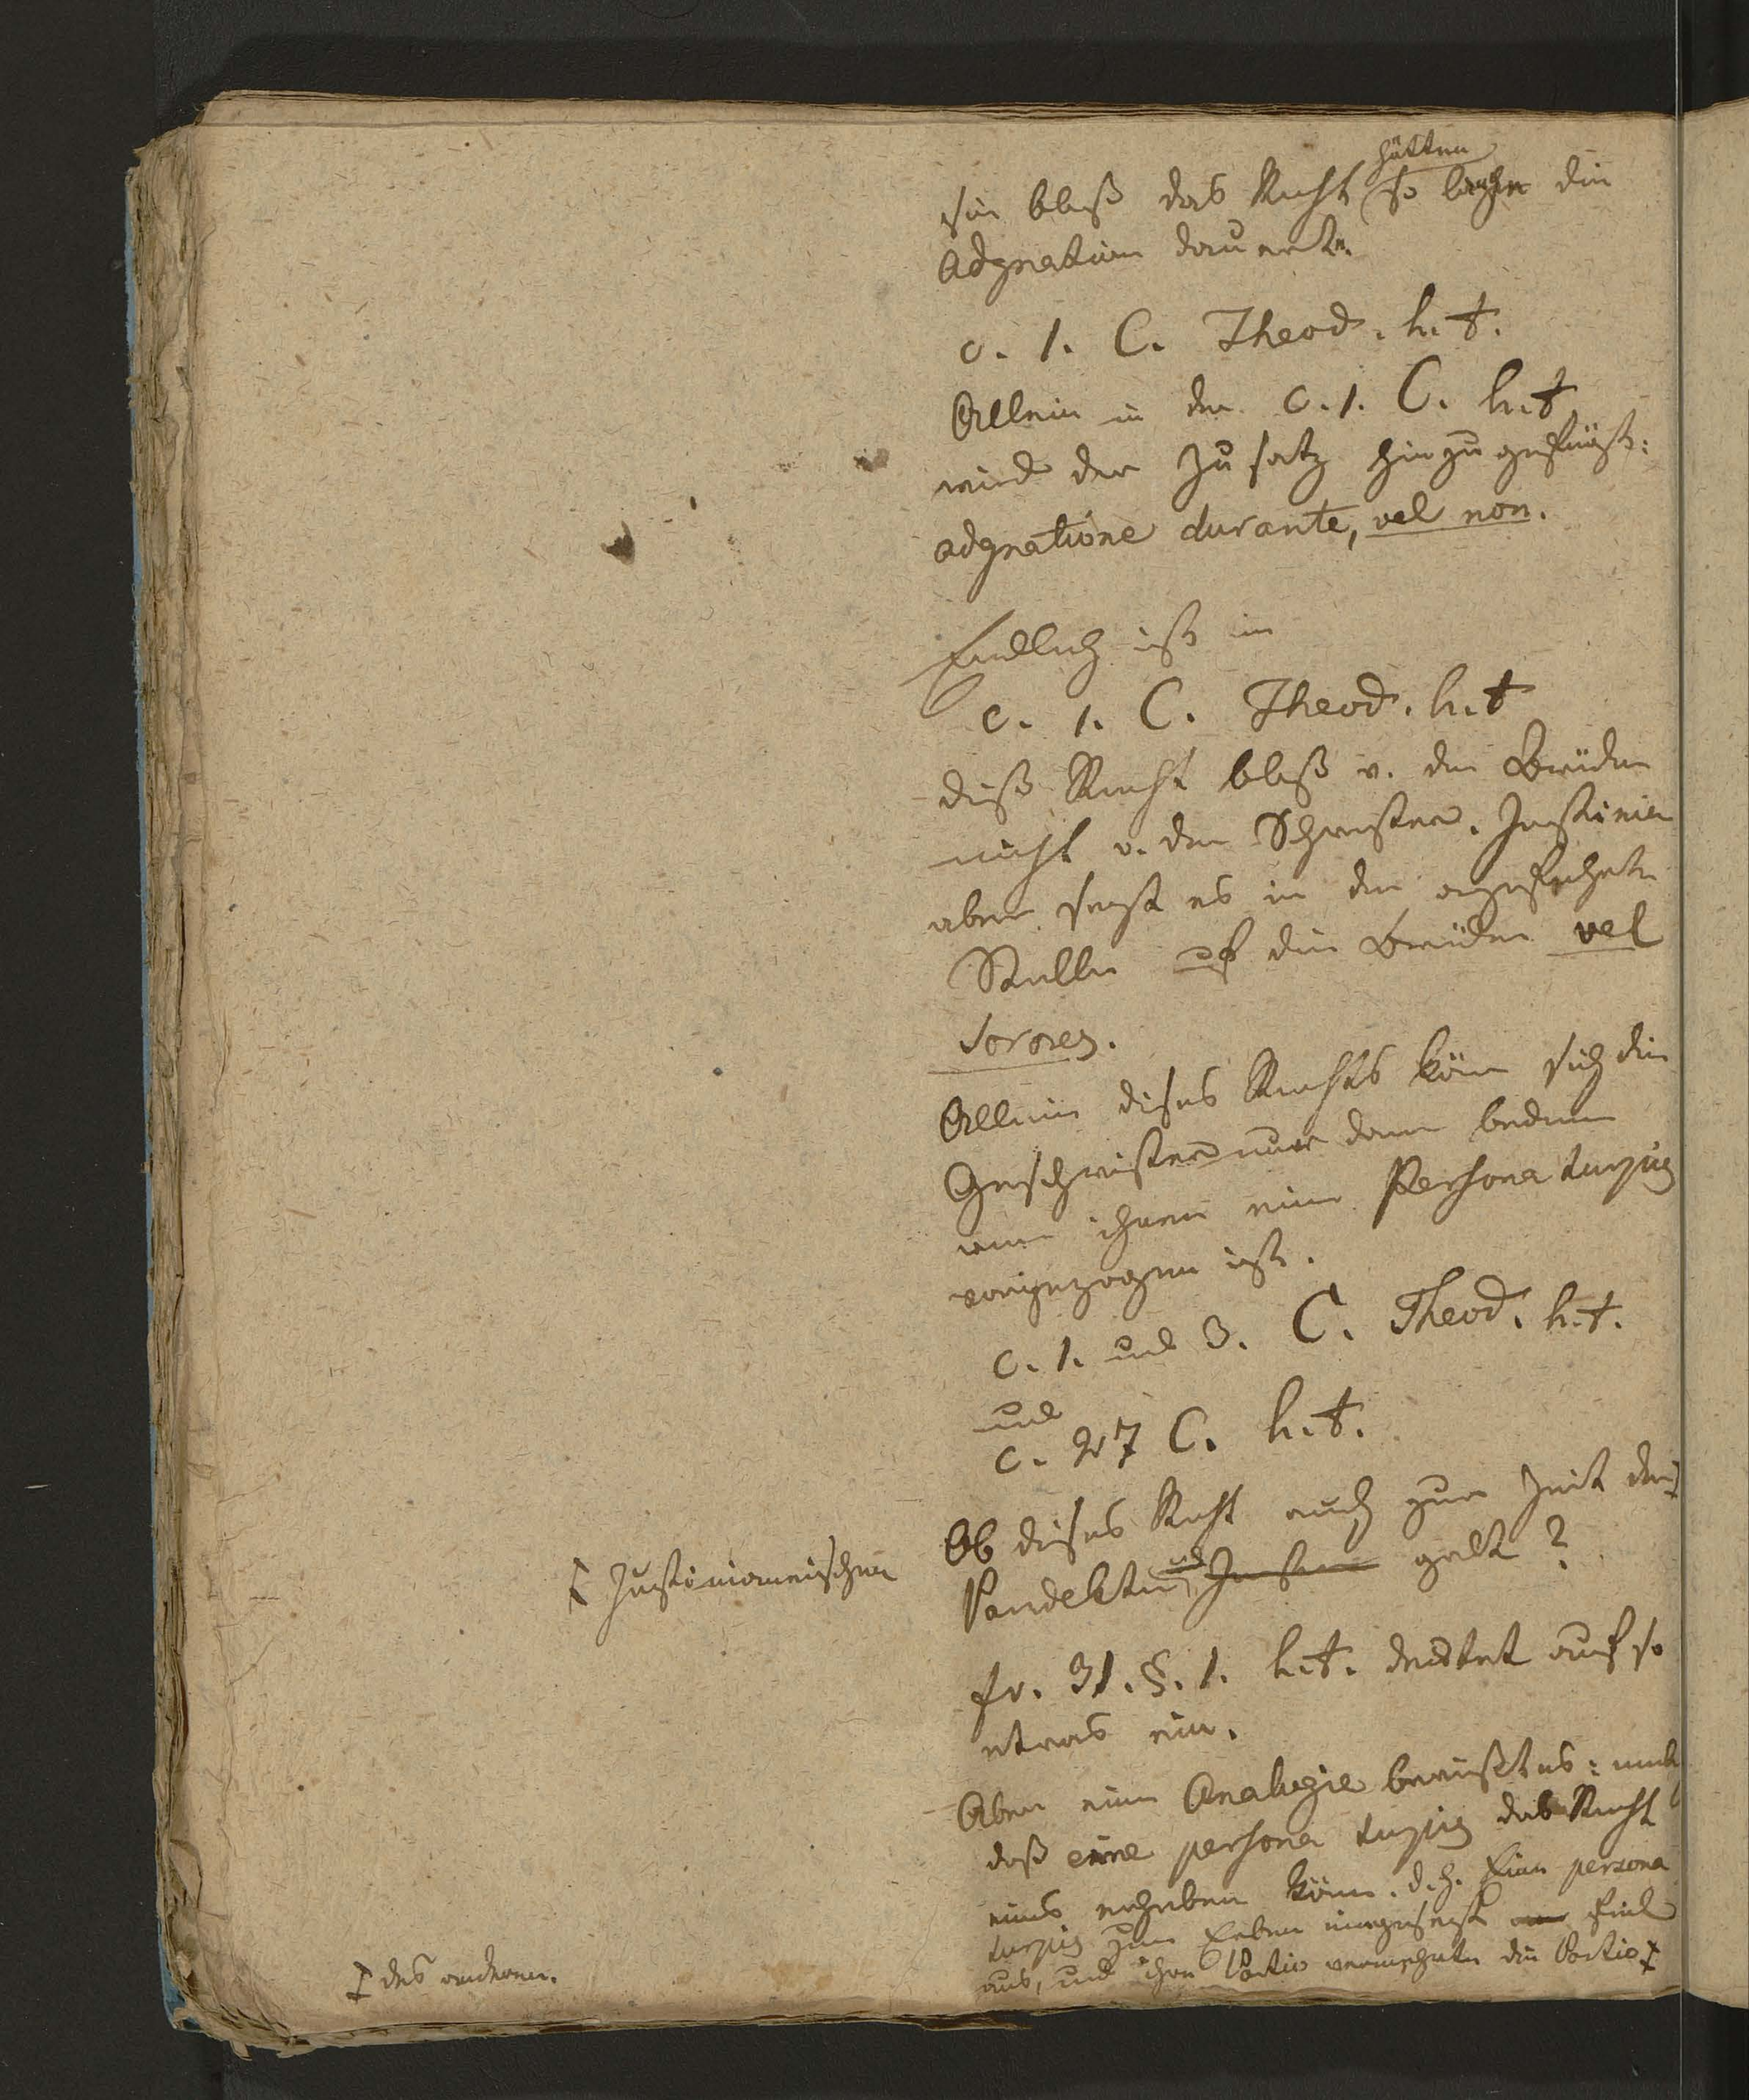 hätten
sie bloß das Recht so lange die
Adgnation dauerte.
c. 1. C. Theod. h. t.
Allein in der c. 1. C. h. t
wird der Zusatz hinzugefügt:
adgnatione durante, vel non.
Endlich ist im
c. 1. C. Theod. h. t
diß Recht bloß v. den Brüdern
nicht v. den Schwestern. Justinian
aber sagt es in der angeführten
Stelle auf die Brüder vel
sorores.
Allein dieses Rechts könen sich die
Geschwister nur dann bedienen
wenn ihnen eine Persona turpis
vorgezogen ist.
c. 1. und 3. C. Theod. h. t.
und
c. 27 C. h. t.
Ob dieses Recht auch zur Zeit der
Γ Justinianeischen
Pandekten galt?
fr. 31. §. 1. h. t. deutet auf so
etwas ein.
Aber eine Analogie beweißt es:
daß eine persona turpis das Recht
eines erheben köne. d. h. Eine persona
turpis zum Erben eingesezt fiel
aus, und ihre Portio vermehrte die Portio
des anderen.